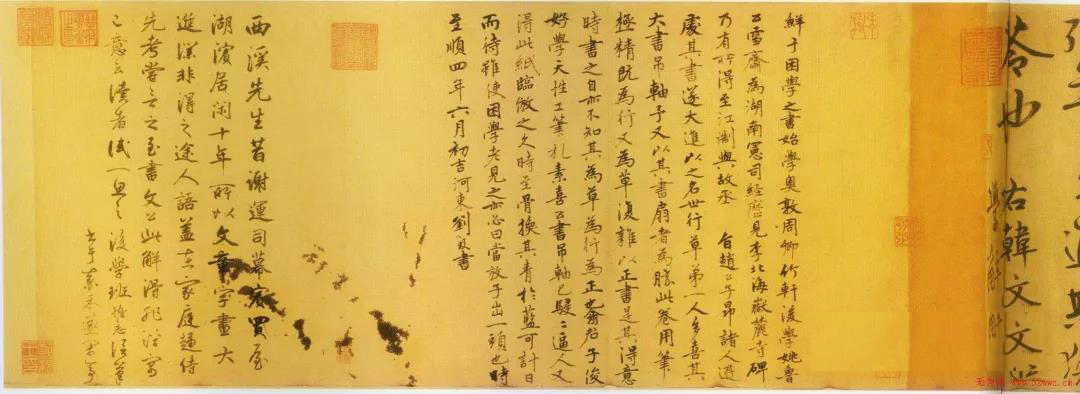 答也 右韓文文
鮮于困學之書始學奧敦周卿竹軒後學姚魯
公雪齋為湖南憲司經歷見李北海嶽麓寺碑
乃有所得至江浙與故丞 旨趙公子昂諸人遊
處其書遂大進以之名世行草第一人多喜其
大書吊軸子又以其書扇者為勝此卷用筆
極精既為行又為草復雜以正書是其得意
時書之自亦不知其為草為行為正也喬君子俊
好學天性工筆札素喜公書吊軸已駸〻逼人又
得此紙臨倣之久時至骨換其青於藍可計日
而待雖使困學老見之亦必曰當放子出一頭也時
至順四年六月初吉河東劉致書
西溪先生昔謝運司幕賓買屋
湖濱居閑十年所以文章字畫大
進深非得之途人語蓋在家庭過侍
先考嘗言之至書文公此解得非
己意云讀者試一思之 後學班惟志謹筆
www.52wwc.cn